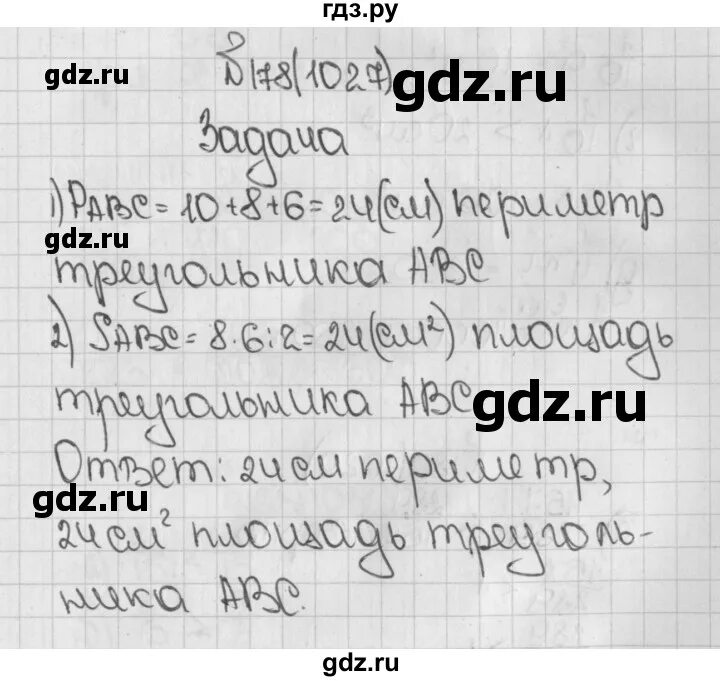 гдз.ру
gdz.ru
№178(1027)
gdz.ru
Задача
1) PABC = 10+8+6=24(см) периметр
gdz.ru
треугольника ABC
2) SABC = 8·6:2=24(см²) площадь
треугольника ABC
gdz.ru
Ответ: 24 см периметр,
gdz.ru
24 см² площадь треуголь-
ника ABC.
gdz.ru